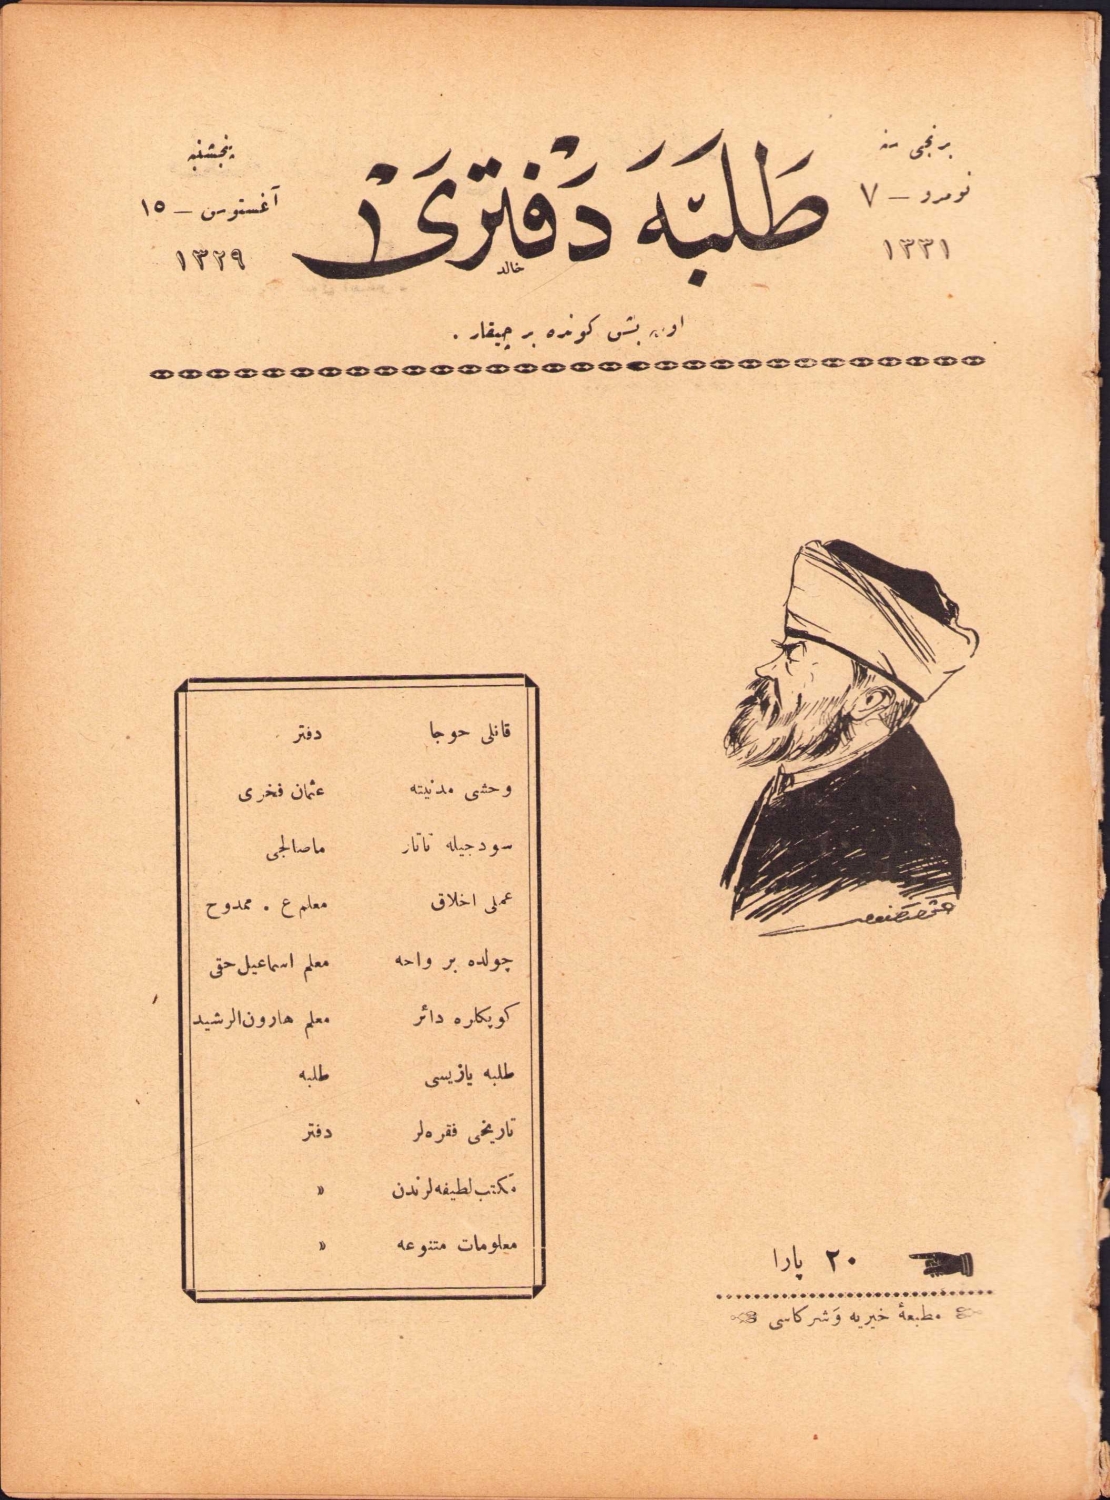 برنجی سنه
نومرو — ٧
١٣٣١
طَلَبَه دَفْتَرَیْ
خالد
پنجشنبه
آغستوس — ١٥
١٣٢٩
اون بش كونده بر چیقار .
قانلی خوجا دفتر
وحشی مدنیته عثمان فخری
سودجیله تاتار ماصالجی
عملی اخلاق معلم ع . ممدوح
چولده بر واحه معلم اسماعیل حقی
كوپكلره دائر معلم هارون الرشید
طلبه یازیسی طلبه
تاریخی فقره لر دفتر
مكتب لطیفه لرندن »
معلومات متنوعه »
٢٠ پارا
مطبعهٔ خیریه وشركاسی